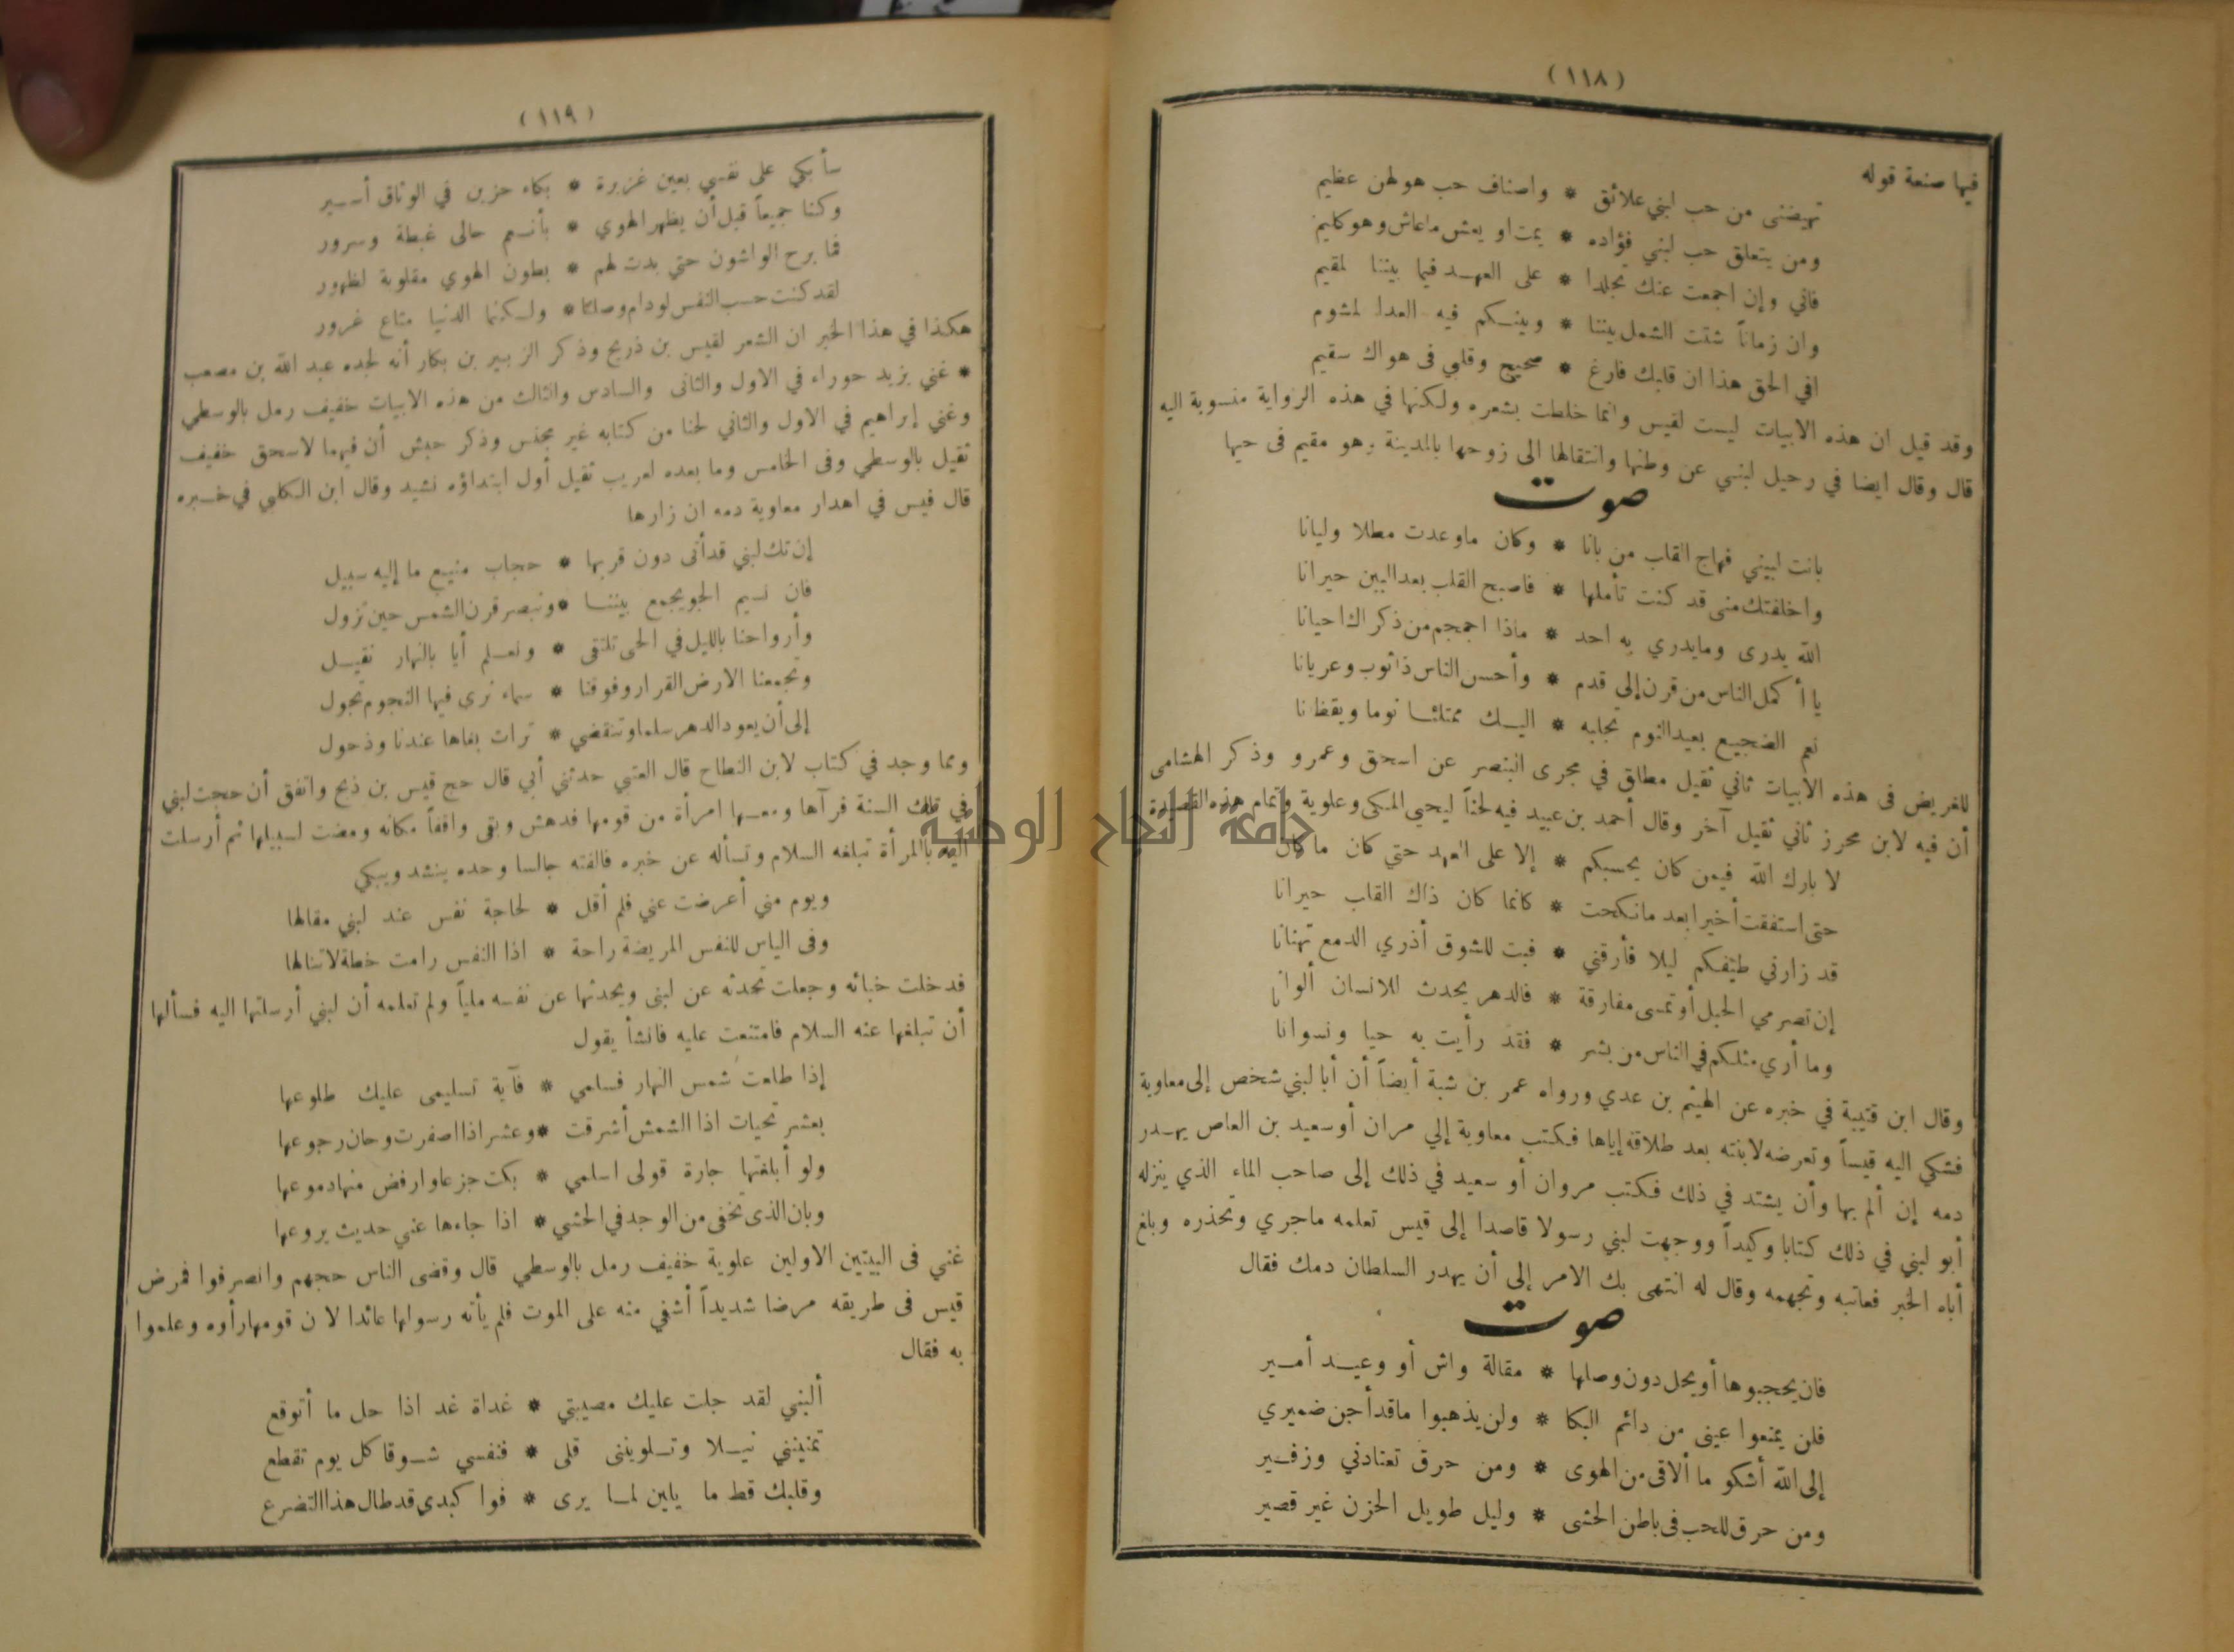 (١١٨)
فيها صنعة قوله
تهيضنى من حب لبني علائق * واصناف حب هولهن عظيم
ومن يتعلق حب لبني فؤاده * يمت او يعش ماعاش وهو كليم
فاني وإن اجمعت عنك تجلدا * على العهد فيما بيننا لمقيم
وان زماناً شتت الشمل بيننا * وبينكم فيه العدا لمشوم
افي الحق هذا ان قلبك فارغ * صحيح وقلبي فى هواك سقيم
وقد قيل ان هذه الابيات ليست لقيس وانما خلطت بشعره ولكنها في هذه الرواية منسوبة اليه
قال وقال ايضا في رحيل لبنى عن وطنها وانتقالها الى زوجها بالمدينة وهو مقيم فى حيها
صوت
بانت لبيني فهاج القلب من بانا * وكان ماوعدت مطلا وليانا
واخلفتك منى قد كنت تأملها * فاصبح القلب بعد البين حيرانا
الله يدرى ومايدري به احد * ماذا اجمجم من ذكراك احيانا
يا أكمل الناس من قرن إلي قدم * وأحسن الناس ذاثوب وعريانا
نعم الضجيع بعيد النوم تجلبه * اليك ممتلئا نوما ويقظانا
للغريض فى هذه الابيات ثاني ثقيل مطلق في مجرى البنصر عن اسحق وعمرو وذكر الهشامى
أن فيه لابن محرز ثاني ثقيل آخر وقال أحمد بن عبيد فيه لحناً ليحيي المكى وعلوية وتمام هذه القصيدة
لا بارك الله فيمن كان يحسبكم * إلا على العهد حتي كان ما كان
حتى استفقت أخيرا بعد مانكحت * كانما كان ذاك القلب حيرانا
قد زارني طيفكم ليلا فأرقني * فبت للشوق أذري الدمع تهتانا
إن تصرمي الحبل أو تمسى مفارقة * فالدهر يحدث للانسان ألوانا
وما أري مثلكم في الناس من بشر * فقد رأيت به حيا ونسوانا
وقال ابن قتيبة في خبره عن الهيثم بن عدي ورواه عمر بن شبة أيضاً أن أبا لبني شخص إلى معاوية
فشكي اليه قيساً وتعرضه لابنته بعد طلاقه إياها فكتب معاوية إلي مران أو سعيد بن العاص يهدر
دمه إن ألم بها وأن يشتد في ذلك فكتب مروان أو سعيد في ذلك إلى صاحب الماء الذي ينزله
أبو لبني في ذلك كتابا وكيداً ووجهت لبني رسولا قاصدا إلى قيس تعلمه ماجري وتحذره وبلغ
أباه الخبر فعاتبه وتجهمه وقال له انتهى بك الامر إلى أن يهدر السلطان دمك فقال
صوت
فان يحجبوها أو يحل دون وصلها * مقالة واش أو وعيد أمير
فلن يمنعوا عينى من دائم البكا * ولن يذهبوا ماقد أجن ضميري
إلى الله أشكو ما ألاقى من الهوى * ومن حرق تعتادني وزفير
ومن حرق للحب فى باطن الحشى * وليل طويل الحزن غير قصير
(١١٩)
سأبكي على نفسي بعين غزيرة * بكاء حزين في الوثاق أسير
وكنا جميعاً قبل أن يظهر الهوي * بأنعم حالى غبطة وسرور
فما برح الواشون حتي بدت لهم * بطون الهوي مقلوبة لظهور
لقد كنت حسب النفس لو دام وصلنا * ولكنما الدنيا متاع غرور
هكذا في هذا الخبر ان الشعر لقيس بن ذريح وذكر الزبير بن بكار أنه لجده عبد الله بن مصعب
* غني يزيد حوراء في الاول والثانى والسادس والثالث من هذه الابيات خفيف رمل بالوسطي
وغني إبراهيم في الاول والثاني لحنا من كتابه غير مجنس وذكر حبش أن فيهما لاسحق خفيف
ثقيل بالوسطي وفى الخامس وما بعده لعريب ثقيل أول ابتداؤه نشيد وقال ابن الكلبي في خبره
قال قيس في اهدار معاوية دمه ان زارها
إن تك لبني قد أتى دون قربها * حجاب منيع ما إليه سبيل
فان نسيم الجو يجمع بيننا * ونبصر قرن الشمس حين تزول
وأرواحنا بالليل في الحى تلتقى * ونعلم أيا بالنهار نقيل
وتجمعنا الارض القرار وفوقنا * سماء نري فيها النجوم تجول
إلى أن يعود الدهر سلما وتنقضي * ترات بغاها عندنا وذحول
ومما وجد في كتاب لابن النطاح قال العتبي حدثني أبي قال حج قيس بن ذيح واتفق أن حجت لبني
في تلك السنة فرآها ومعها امرأة من قومها فدهش وبقى واقفاً مكانه ومضت لسبيلها ثم أرسلت
اليه بالمرأة تبلغه السلام وتسأله عن خبره فالفته جالسا وحده ينشد ويبكي
ويوم مني أعرضت عني فلم أقل * لحاجة نفس عند لبني مقالها
وفى الياس للنفس المريضة راحة * اذا النفس رامت خطة لاتنالها
فدخلت خبائه وجعلت تحدثه عن لبنى ويحدثها عن نفسه ملياً ولم تعلمه أن لبني أرسلتها اليه فسألها
أن تبلغها عنه السلام فامتنعت عليه فانشأ يقول
إذا طلعت شمس النهار فسلمي * فآية تسليمى عليك طلوعها
بعشر تحيات اذا الشمش أشرقت * وعشر اذا اصفرت وحان رجوعها
ولو أبلغتها جارة قولى اسلمي * بكت جزعا وارفض منها دموعها
وبان الذى تخفى من الوجد في الحشي * اذا جاءها عني حديث يروعها
غني فى البيتين الاولين علوية خفيف رمل بالوسطي قال وقضى الناس حجهم وانصرفوا فمرض
قيس فى طريقه مرضا شديداً أشفي منه على الموت فلم يأته رسولها عائدا لان قومها رأوه وعلموا
به فقال
ألبني لقد جلت عليك مصيبتي * غداة غد اذا حل ما أتوقع
تمنينني نيلا وتلوينى قلى * فنفسي شوقا كل يوم تقطع
وقلبك قط ما يلين لما يرى * فوا كبدى قد طال هذا التضرع
جامعة النجاح الوطنية